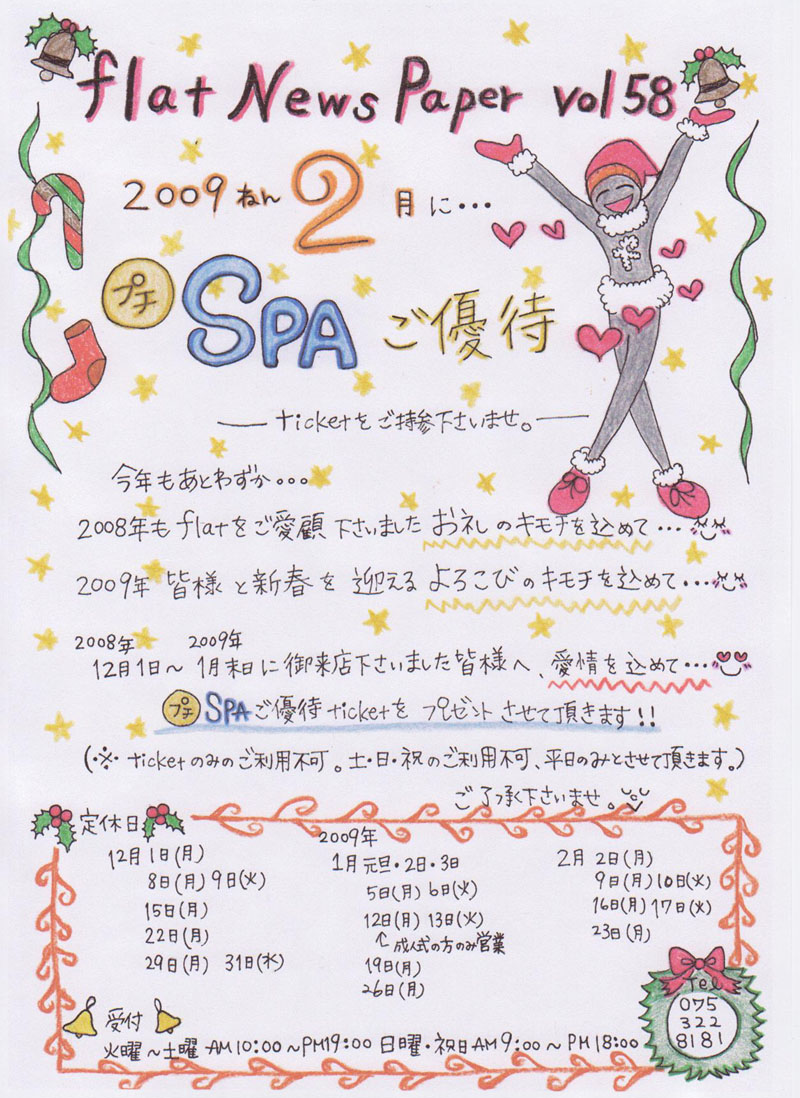 flat News Paper vol 58
2009ねん 2月に・・・
プチ SPA ご優待
ticketをご持参下さいませ。
今年もあとわずか・・・
2008年も flatをご愛顧下さいました お礼のキモチを込めて・・・
2009年 皆様と新春を迎える よろこびのキモチを込めて・・・
2008年 2009年
12月1日〜1月末日に御来店下さいました皆様へ、愛情を込めて・・・
プチ SPA ご優待ticketを プレゼント させて頂きます!!
(※ ticketのみのご利用不可。土・日・祝のご利用不可、平日のみとさせて頂きます。)
ご了承下さいませ。
定休日
12月1日(月)
8日(月) 9日(火)
15日(月)
22日(月)
29日(月) 31日(水)
2009年
1月 元旦・2日・3日
5日(月) 6日(火)
12日(月) 13日(火)
↑成人式の方のみ営業
19日(月)
26日(月)
2月 2日(月)
9日(月) 10日(火)
16日(月) 17日(火)
23日(月)
受付
火曜〜土曜 AM10:00〜PM19:00 日曜・祝日AM9:00〜PM18:00
Tel
075
322
8181